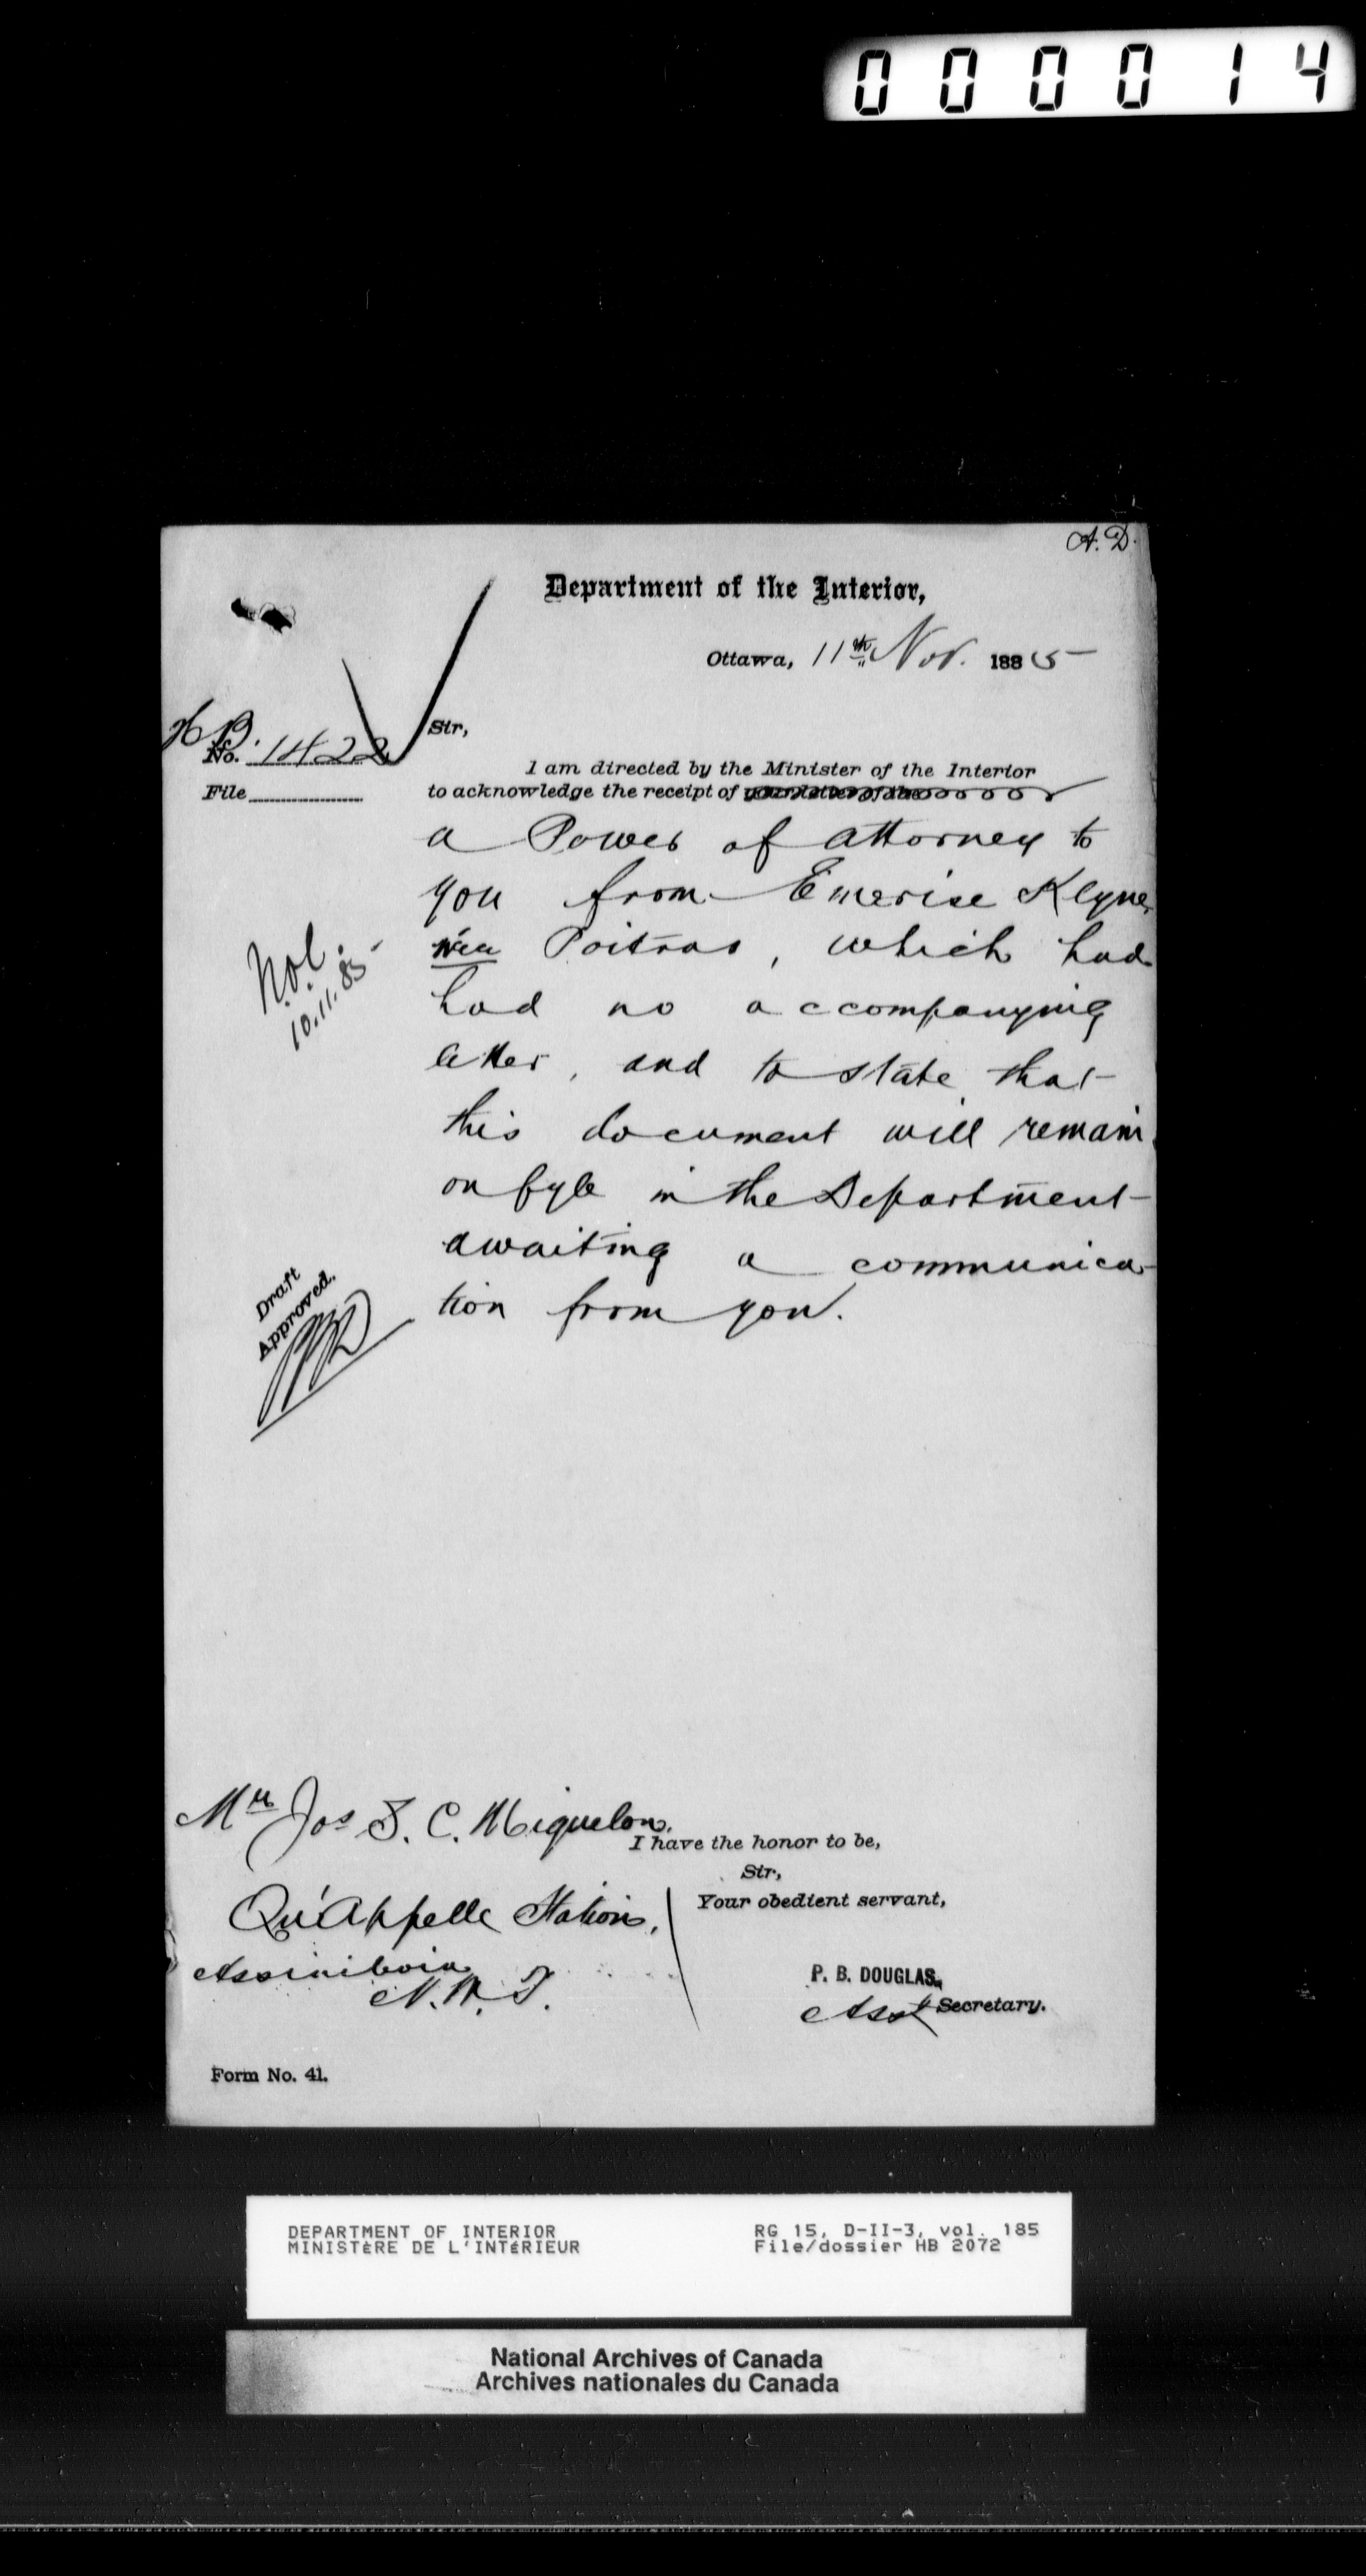 000014
A. D.
Department of the Interior,
Ottawa, 11th Nov. 1885
H B.
No. 1422
File
Sir,
I am directed by the Minister of the Interior
to acknowledge the receipt of your letter of the
a Power of Attorney to
you from Emerise Klyne
née Poitras, which had
had no accompanying
letter, and to state that
this document will remain
on fyle in the Department
awaiting a communica-
tion from you.
10.11.85
Draft
Approved.
Mr Jos S. C. Miquelon,
Qu'Appelle Station,
Assiniboia
N. W. T.
I have the honor to be,
Sir,
Your obedient servant,
P. B. DOUGLAS,
Asst Secretary.
Form No. 41.
DEPARTMENT OF INTERIOR
MINISTÈRE DE L'INTÉRIEUR
RG 15, D-II-3, vol. 185
File/dossier HB 2072
National Archives of Canada
Archives nationales du Canada